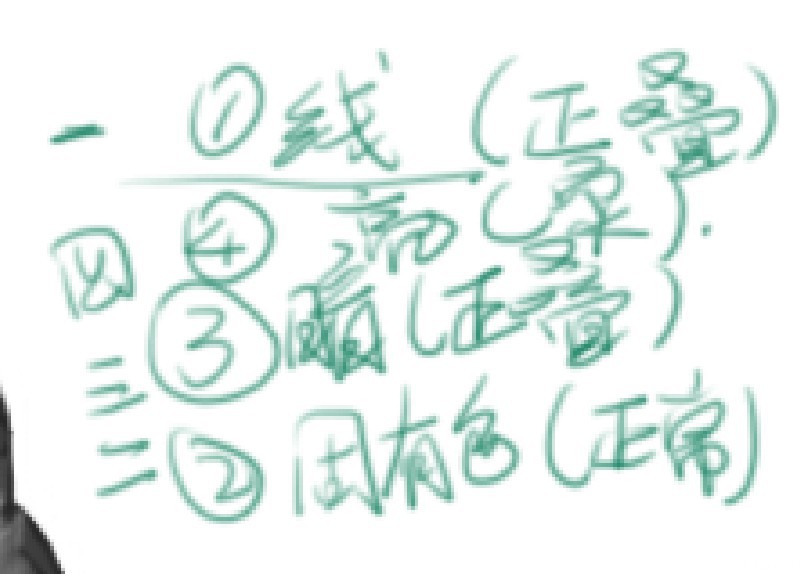 一 ①线(正叠)
四 ④高().
三 ③暗(正叠)
二 ②固有色(正常)